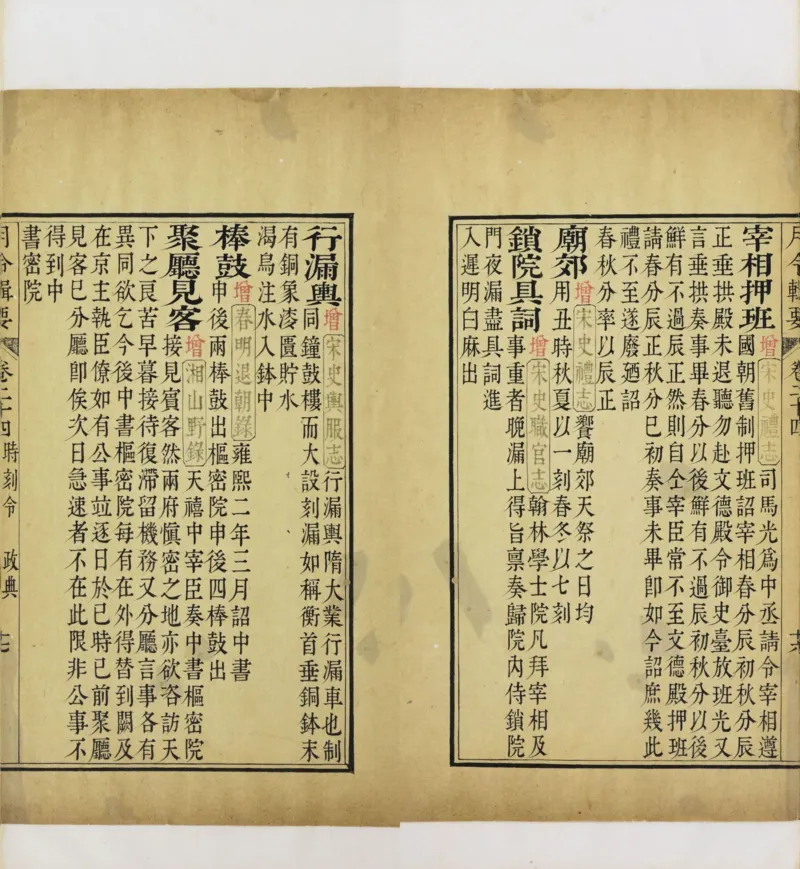 月令輯要 卷二十四
宰相押班增宋史禮志司馬光爲中丞請令宰相遵
國朝舊制押班詔宰相春分辰初秋分辰
正垂拱殿未退聽勿赴文德殿令御史臺放班光又
言垂拱奏事畢春分以後鮮有不過辰初秋分以後
鮮有不過辰正然則自仝宰臣常不至文德殿押班
請春分辰正秋分巳初奏事未畢卽如今詔庶幾此
禮不至遂廢廼詔
春秋分率以辰正
廟郊增宋史禮志饗廟郊天祭之日均
用丑時秋夏以一刻春冬以七刻
鎖院具詞增宋史職官志翰林學士院凡拜宰相及
事重者晚漏上得旨禀奏歸院內侍鎖院
門夜漏盡具詞進
入遲明白麻出
行漏輿增宋史輿服志行漏輿隋大業行漏車也制
同鐘鼓樓而大設刻漏如稱衡首垂銅鉢末
有銅象漆匱貯水
渴烏注水入鉢中
棒鼓增春明退朝錄雍熙二年三月詔中書
申後兩棒鼓出樞密院申後四棒鼓出
聚廳見客增湘山野錄天禧中宰臣奏中書樞密院
接見賓客然兩府愼密之地亦欲咨訪天
下之艮苦早暮接待復滯留機務又分廳言事各有
異同欲乞今後中書樞密院每有在外得替到闕及
在京主執臣僚如有公事竝逐日於巳時已前聚廳
見客巳分廳卽俟次日急速者不在此限非公事不
得到中
書密院
月令輯要 卷二十四 時刻令 政典